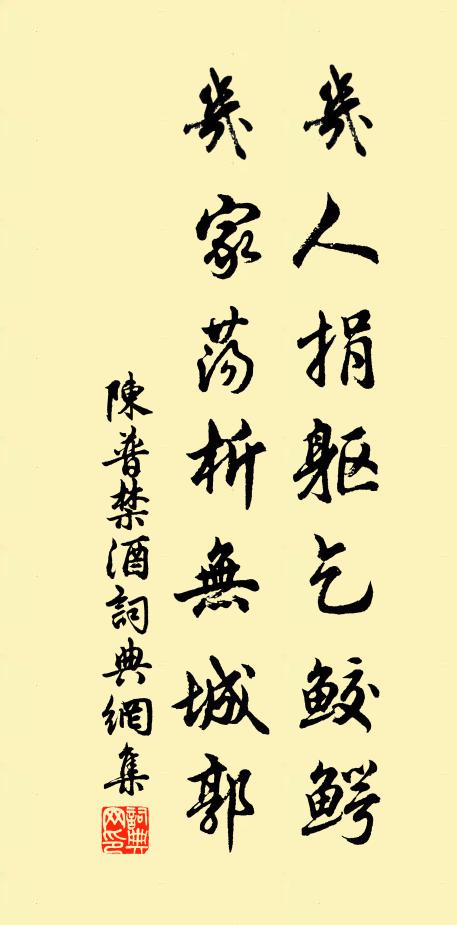 幾人捐軀乞鮫鰐
幾家蕩析無城郭
陳普禁酒詞典網集
詞典网印